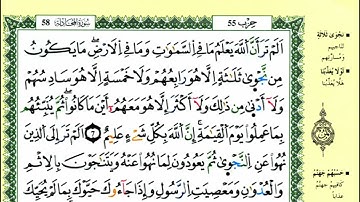 58 سُورَةُ المُجَادلَة
حِزْب 55
أَلَمْ تَرَ أَنَّ اللَّهَ يَعْلَمُ مَا فِي السَّمَٰوَٰتِ وَمَا فِي الْأَرْضِ مَا يَكُونُ
مِن نَّجْوَىٰ ثَلَٰثَةٍ إِلَّا هُوَ رَابِعُهُمْ وَلَا خَمْسَةٍ إِلَّا هُوَ سَادِسُهُمْ
وَلَا أَدْنَىٰ مِن ذَٰلِكَ وَلَا أَكْثَرَ إِلَّا هُوَ مَعَهُمْ أَيْنَ مَا كَانُوا ثُمَّ يُنَبِّئُهُم
بِمَا عَمِلُوا يَوْمَ الْقِيَٰمَةِ إِنَّ اللَّهَ بِكُلِّ شَيْءٍ عَلِيمٌ ٧ أَلَمْ تَرَ إِلَى الَّذِينَ
نُهُوا عَنِ النَّجْوَىٰ ثُمَّ يَعُودُونَ لِمَا نُهُوا عَنْهُ وَيَتَنَٰجَوْنَ بِالْإِثْمِ
وَالْعُدْوَٰنِ وَمَعْصِيَتِ الرَّسُولِ وَإِذَا جَاءُوكَ حَيَّوْكَ بِمَا لَمْ يُحَيِّكَ
نَجْوَى ثَلَاثَةٍ
تَنَاجِيهِم
لَوْلَا يُعَذِّبُنَا
هَلَّا يُعَذِّبُنَا
حَسْبُهُمْ جَهَنَّمُ
كَافِيهِمْ جَهَنَّمُ
عَذَابًا